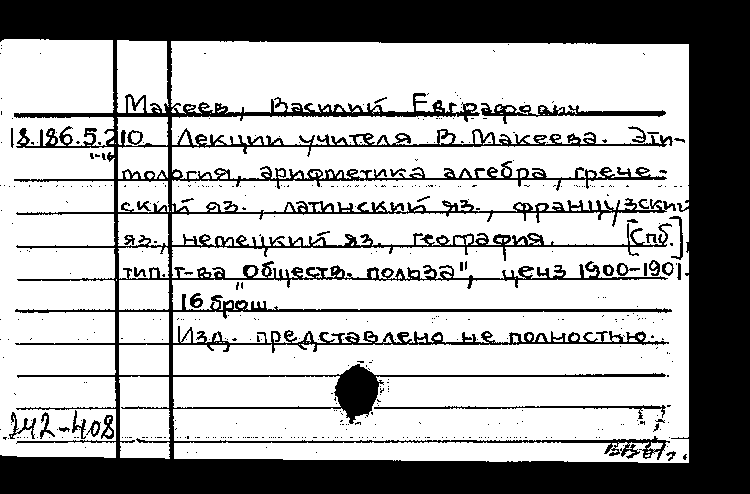 Макеев, Василий Евграфович
18.186.5.210. Лекции учителя В. Макеева. Эти-
1-16
мология, арифметика алгебра, грече-
ский яз., латинский яз., французский
яз., немецкий яз., география. [Спб.],
тип. т-ва "Обществ. польза", ценз 1900-1901.
16 брош.
Изд. представлено не полностью.
242-408